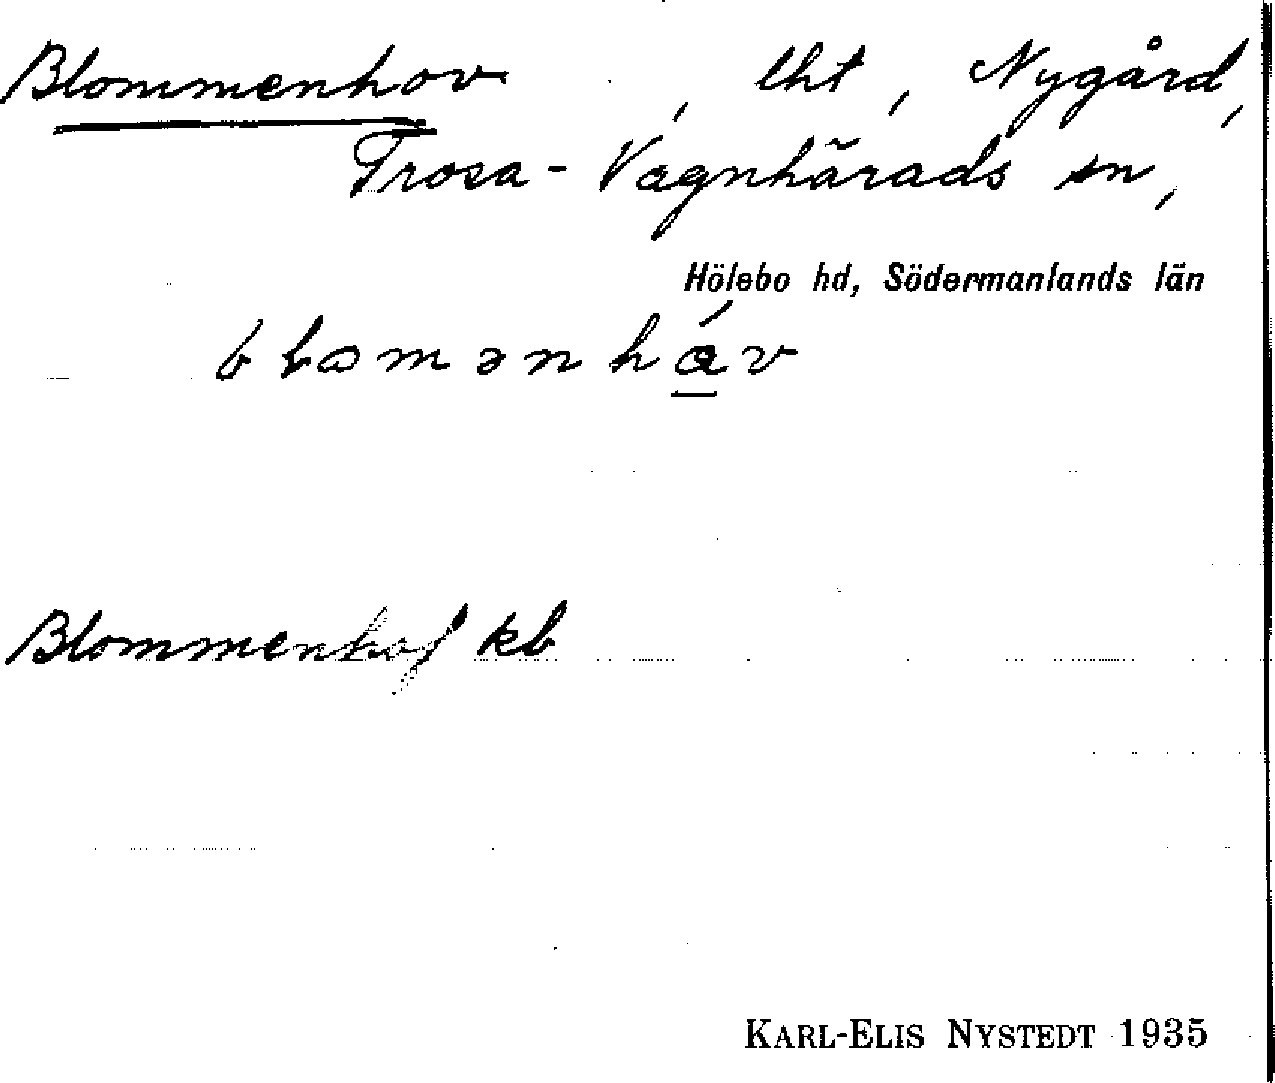 Blommenhov, lht, Nygård,
Trosa-Vagnhärads sn,
Hölebo hd, Södermanlands län
Blommenhof kb
KARL-ELIS NYSTEDT 1935